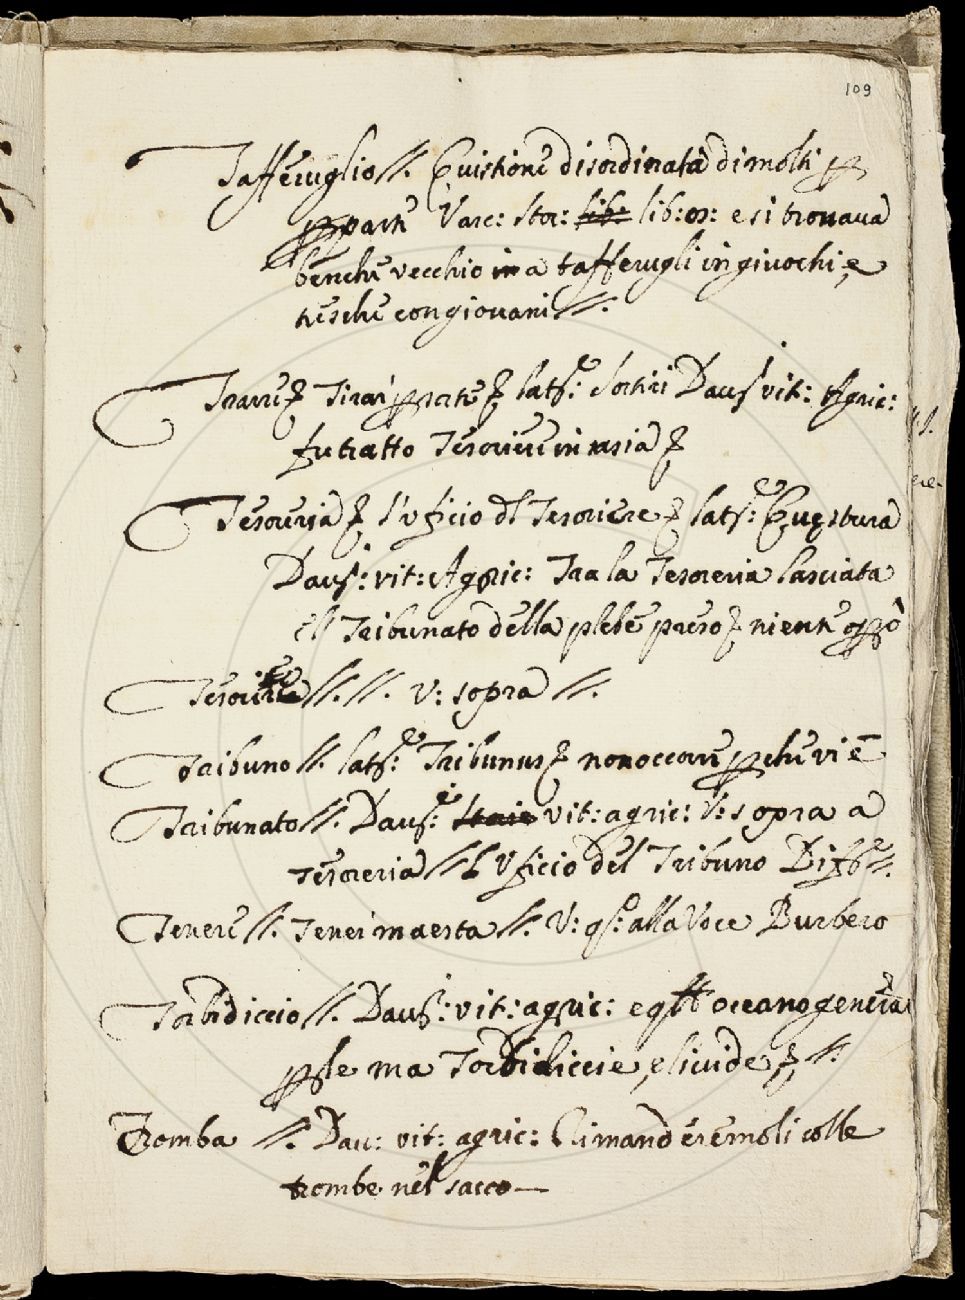 109
Tafferuglio //. Quistione disordinata di molti p
parte Varc: stor: lib: lib: 03: e si trovava
benche vecchio in a tafferugli in giuochi, e
tresche con giovani //.
Trarre Tirar sorte lat: Sortiri Dau: vit: Agric:
fu tratto Tesoriere in Asia
Tesoreria l'uficio dl Tesoriere lat: Quęstura
Dau: vit: Agric: Tra la Tesoreria lasciata
e'l Tribunato della plebe preso niente
Tesoriere //. //. V: sopra //.
Tribuno //. lat: Tribunus non occorre pche vi è
Tribunato //. Dau: vit: agric: V: sopra a
Tesoreria // L'Uficio del Tribuno Diff: //.
Tenere //. Tener maesta //. V: qs: alla Voce Burbero
Torbidiccio //. Dau: vit: agric: e qsto oceano genera
ple ma Torbidiccie, e livide, //.
Tromba //. Dau: vit: agric: Rimanderemoli colle
trombe nel sacco —